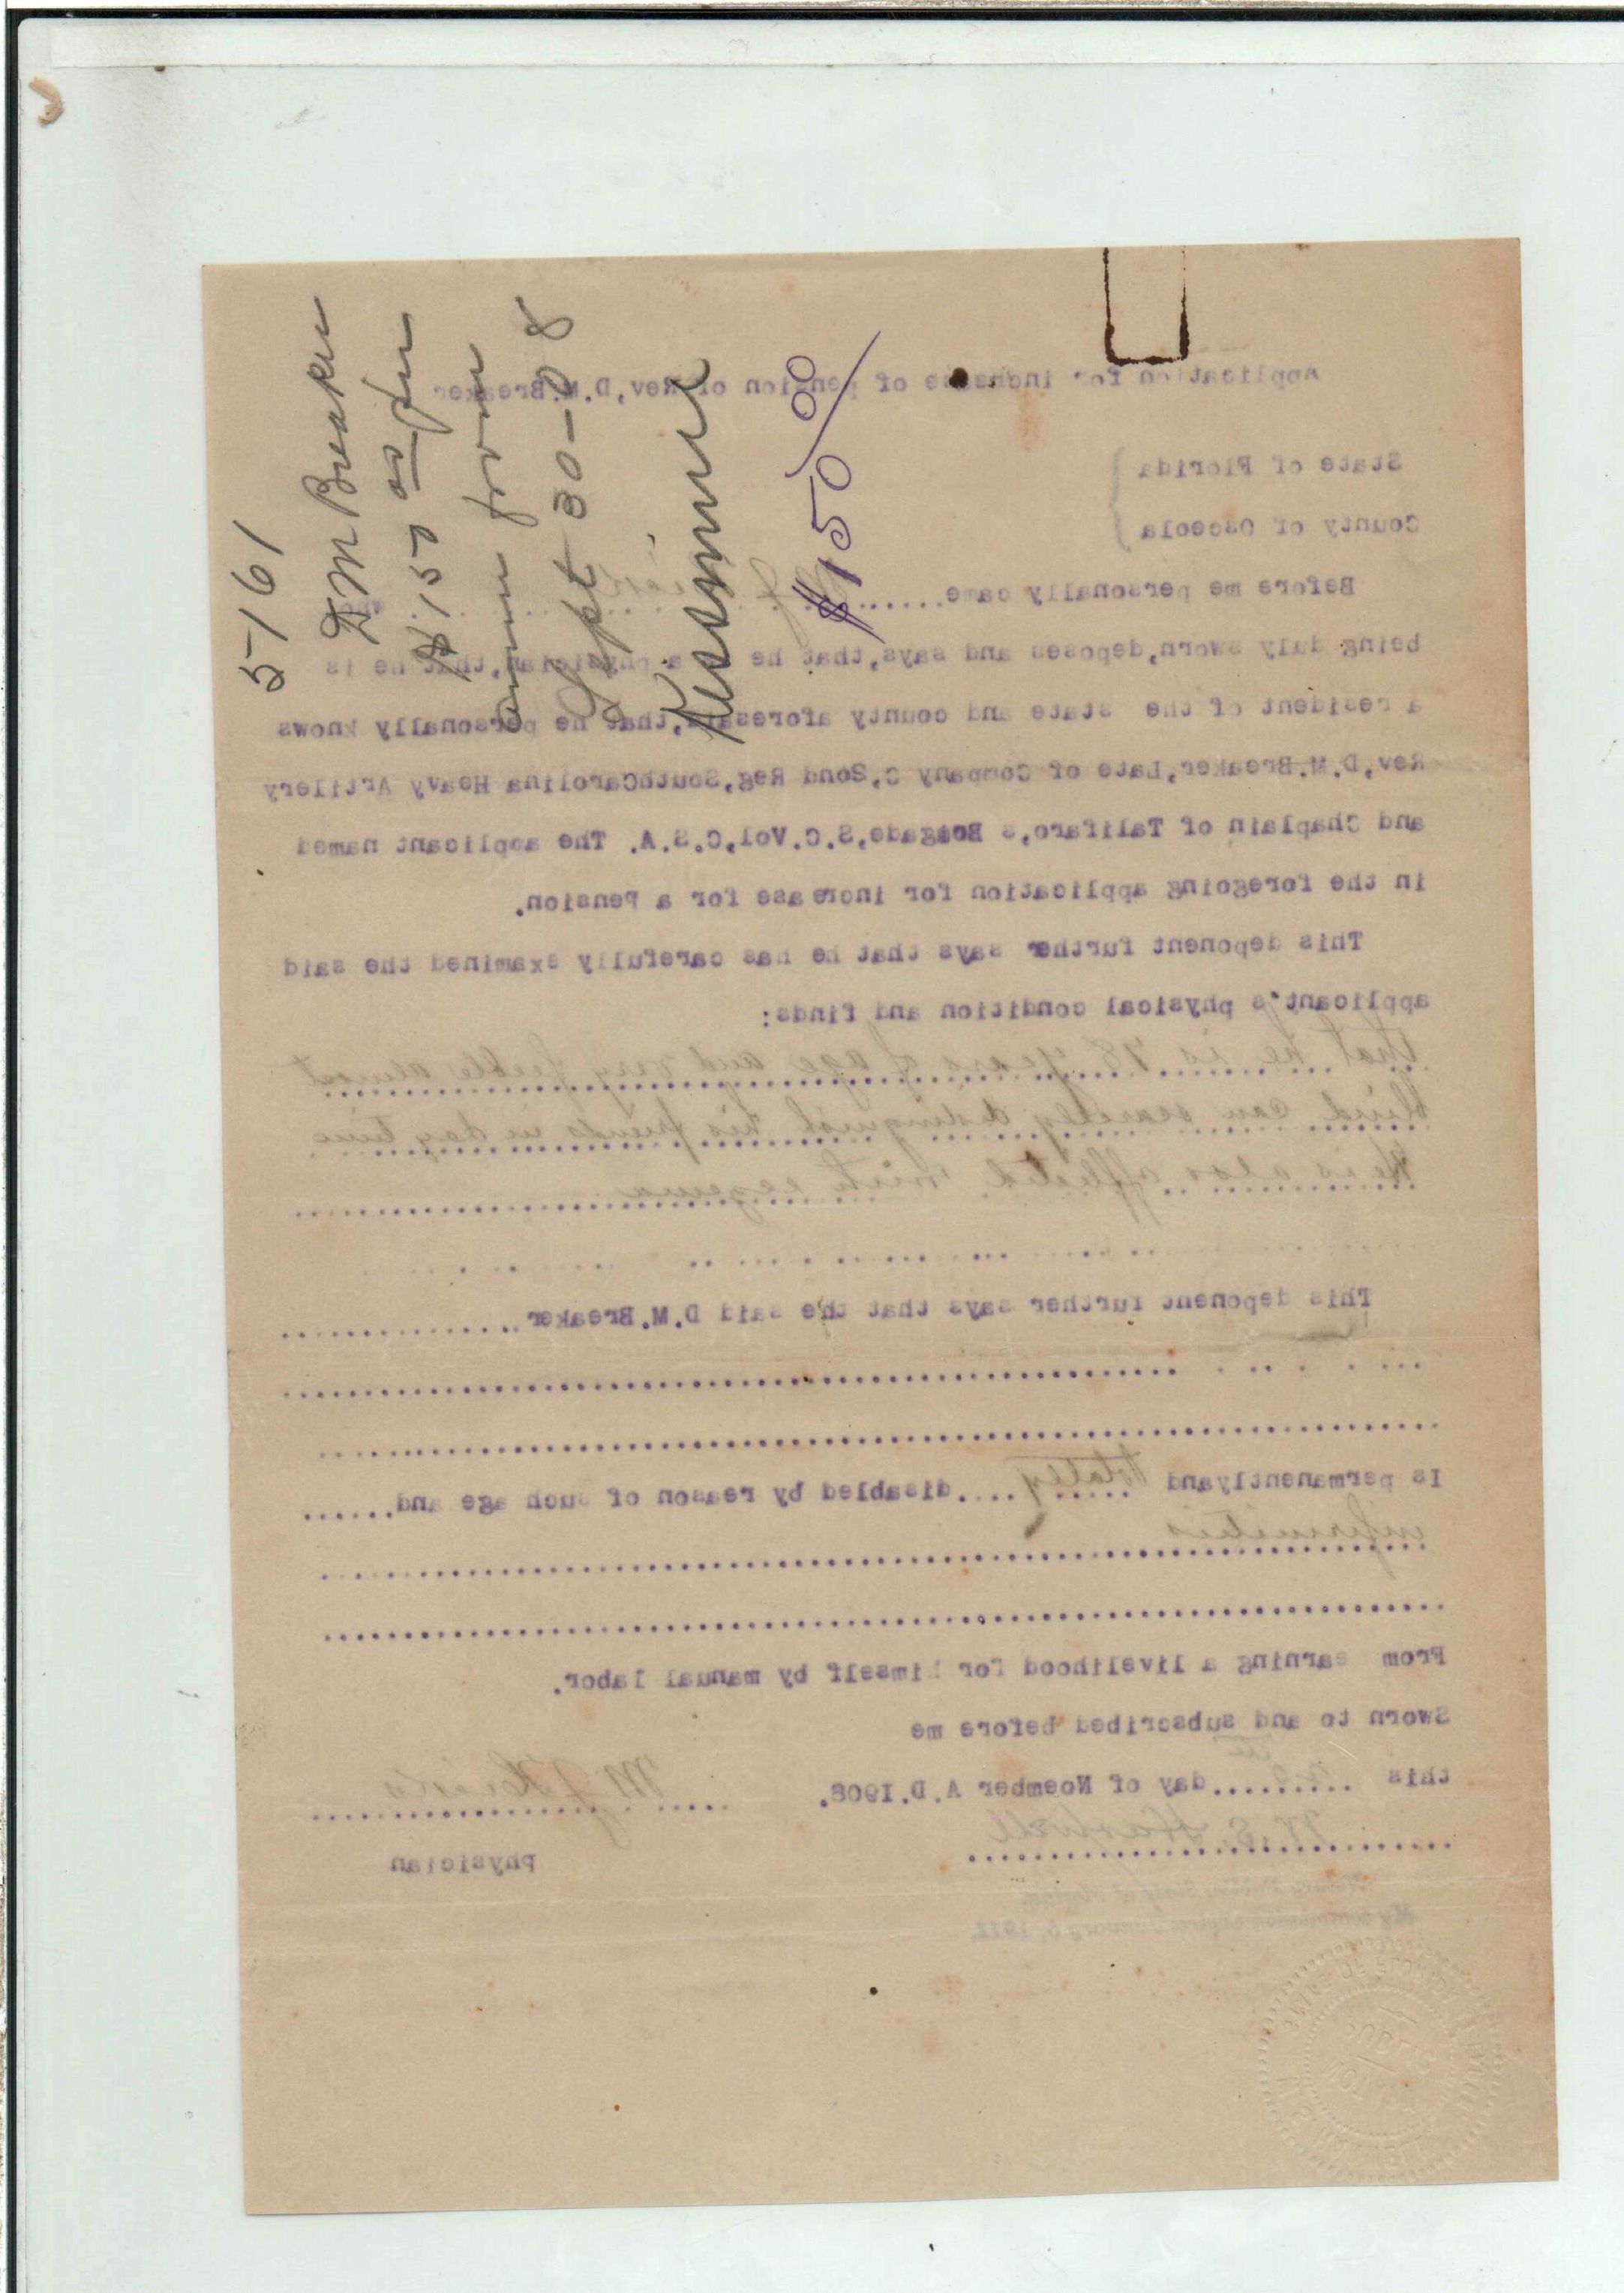 5161
D M Breaker
$150 00 per
annum from
Sept 30-08
Kissimmee
$150 00
Application for increase of pension of Rev,D.M.Breaker
State of Florida
County of Osceola
Before me personally came
being duly sworn,deposes and says,that he a physician,that he is
a resident of the state and county aforesaid,that he personally knows
Rev,D.M.Breaker,Late of Company C,2ond Reg,SouthCarolina Heavy Artillery
and Chaplain of Talifaro,s S.C.Vol,C.S.A. The applicant named
in the foregoing application for increase for a Pension.
This deponent further says that he has carefully examined the said
applicant's physical condition and finds:
that he is 78 years of age and very feeble almost
blind can scarcely distinguish his friends in day time
He is also afflicted with eczema
This deponent further says that the said D.M.Breaker
Is permanentlyand totaly disabled by reason of such age and
infirmities
From earning a livelihood for himself by manual labor.
Sworn to and subscribed before me
this day of Noember A.D.1908.
Physician
My commission expires January